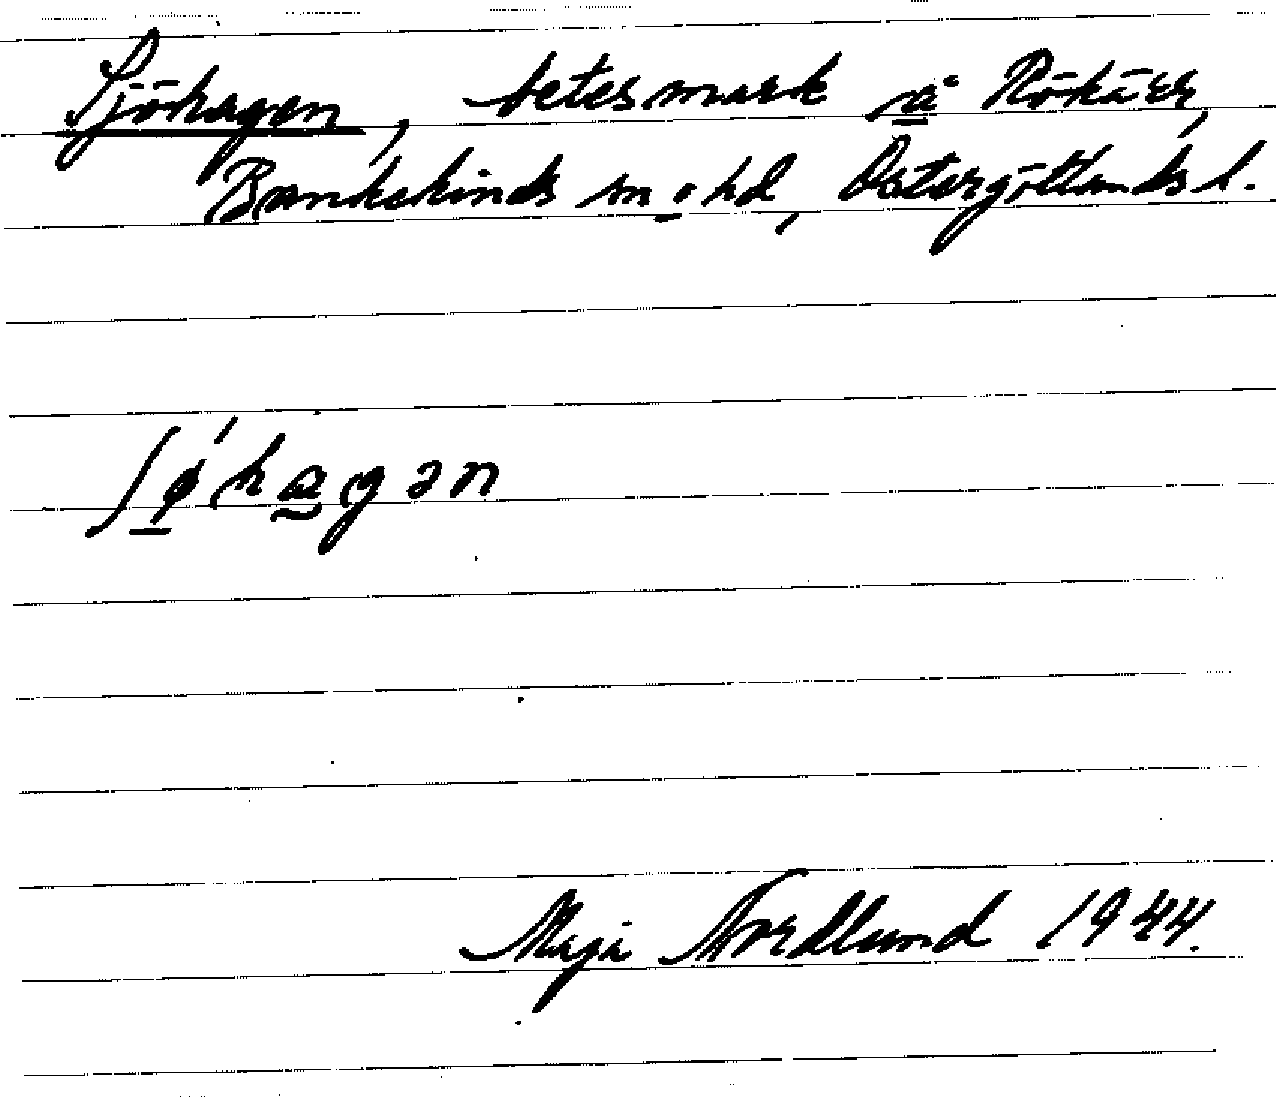 Sjöhagen, betesmark å Rökärr,
Bankekinds sn o hd, Östergötlands l.
ʃǿhagən
Maja Nordlund 1944.